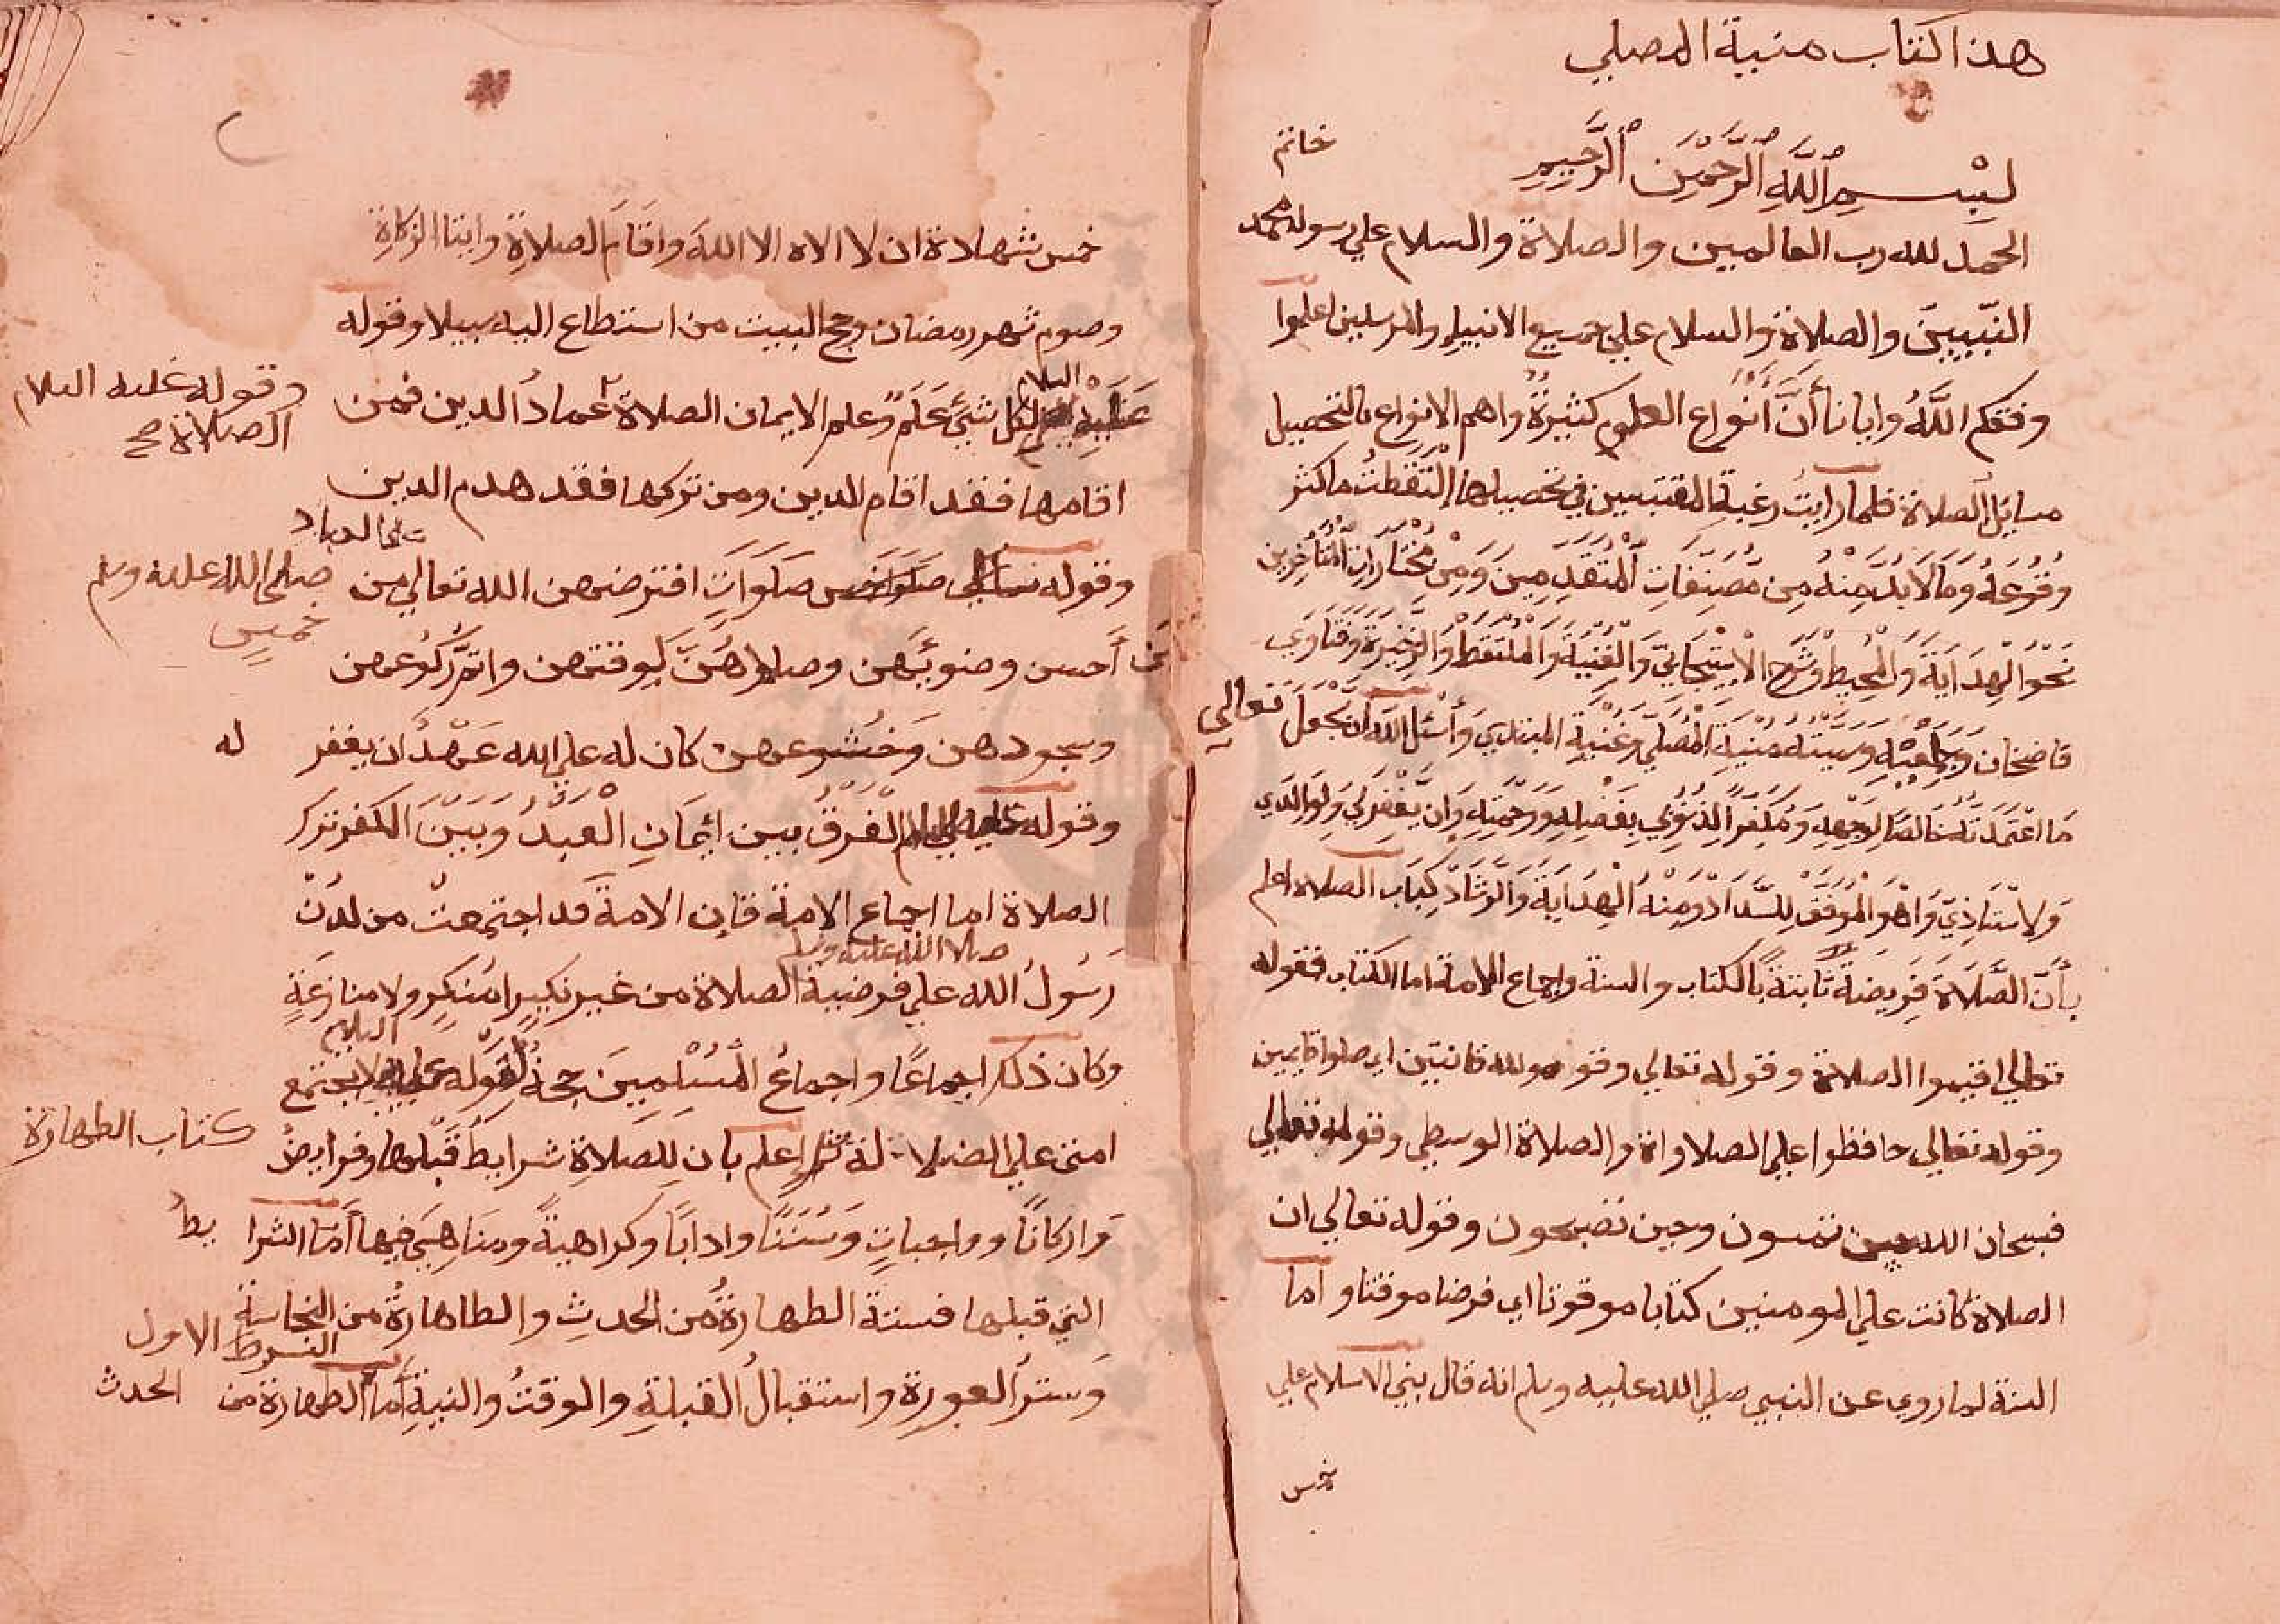 هذا كتاب منية المصلي
بِسْمِ ٱللَّهِ ٱلرَّحْمٰنِ ٱلرَّحِيمِ
خاتم
الحمد لله رب العالمين والصلاة والسلام علي رسوله محمد
النبيين والصلاة والسلام علي جميع الانبياء والمرسلين اعلموا
وفقكم اللَّهُ وايانا أنَّ أنواع العلوم كثيرةٌ واهم الانواع بالتحصيل
مسايل الصلاة فلما رايت رغبة المقتبسين في تحصيلها التقطت ما كثر
وقوعه وما لا بد منه من مصنفات المتقدمين ومن مختارات المتأخرين
نحو الهداية والمحيط وشرح الاسبيجابي والغنية والملتقط والذخيرة وفتاوي
قاضخان وجامعيه وسميته منية المصلي وغنية المبتدي وأسئل الله أن يجعل تعالي
ما اعتمدته خالصا لوجهه ومكفرا لذنوبي بفضله ورحمته وان يغفر لي ولوالدي
ولاستاذي واهو الموفق للسداد ومنه الهداية والرشاد كتاب الصلاة اعلم
بأن الصلاة فريضة ثابتة بالكتاب والسنة واجماع الامة اما الكتاب فقوله
تعالي اقيموا الصلاة وقوله تعالي وقوموا لله قانتين اي صلوا قايمين
وقوله تعالي حافظوا علي الصلاواة والصلاة الوسطي وقوله تعالي
فسبحان الله حين تمسون وحين تصبحون وقوله تعالي ان
الصلاة كانت علي المومنين كتابا موقوتا اي فرضا موقتا واما
السنة لما روي عن النبي صلي الله عليه وسلم انه قال بني الاسلام علي
خمس
خمس شهادة ان لا الاه الا الله واقام الصلاةِ وايتا الزكاةِ
وصوم شهر رمضان وحج البيت من استطاع اليه سبيلا وقوله
السلام
عليه لكل شئ عَلَمٌ وعلم الايمان الصلاة عمادُ الدين فمن
وقوله عليه السلام
الصلاة صح
اقامها فقد اقام الدين ومن تركها فقد هدم الدين
علي العباد
وقوله خمس صَلَوَاتٍ افترضهن الله تعالي من
صلي الله عليه وسلم
خمس
أحسن وضوئهن وصلاهن لوقتهن واتم ركوعهن
وسجودهن وخشوعهن كان له علي الله عهدٌ ان يغفر له
وقوله عليه السلام الفرق بين ايمان العبد وبين الكفر ترك
الصلاة اما اجماع الامة فان الامة قد اجتمعت من لدن
صلا الله عليه وسلم
رسول الله علي فرضية الصلاة من غير نكير منكر ولا منازعة
السلام
وكان ذلك اجماعًا واجماع المسلمين حجة لقوله عليه لا يجتمع
امتي علي الضلالة ثم اعلم بان للصلاة شرايط قبلها وفرايض
كتاب الطهارة
واركانًا وواجبات وسننًا وادابًا وكراهية ومناهي فيها أما الشرا يط
التي قبلها فستة الطهارة من الحدث والطاهارة من النجاسة
الشرط الاول
وستر العورة واستقبال القبلة والوقت والنية أما الطهارة من الحدث